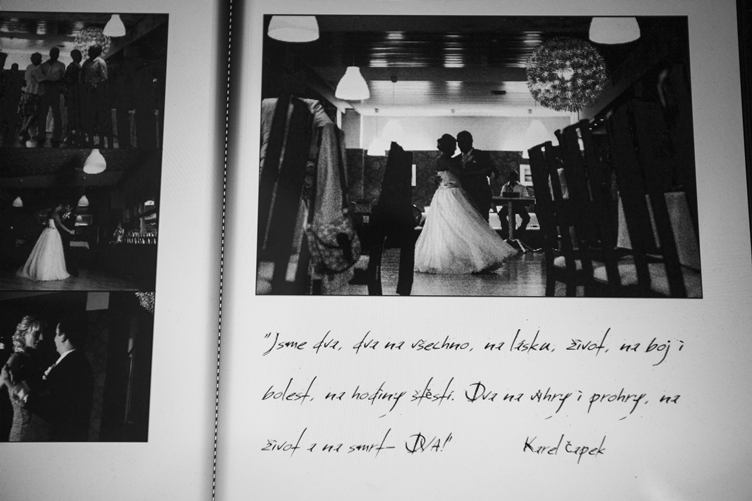 "Jsme dva, dva na všechno, na lásku, život, na boj i
bolest, na hodiny štěstí. Dva na výhry i prohry, na
život a na smrt - DVA!" Karel Čapek